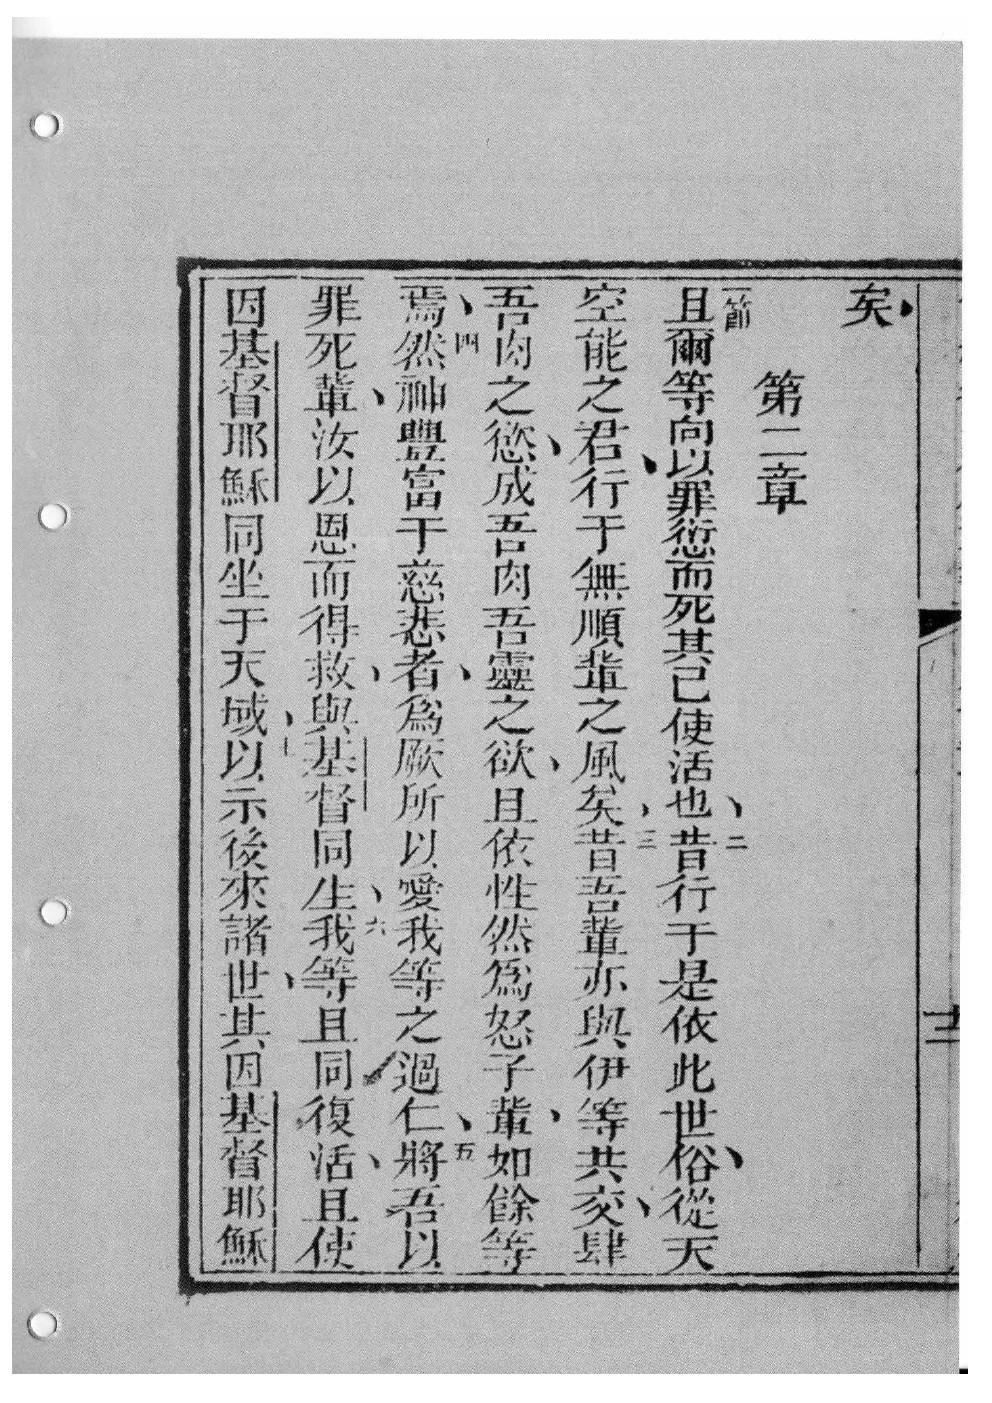 矣、
第二章
一節且爾等向以罪愆而死其已使活也、二昔行于是依此世俗、從天
空能之君、行于無順輩之風矣、三昔吾輩亦與伊等共交、肆
吾肉之慾、成吾肉吾靈之欲、且依性然為怒子輩、如餘等
焉、四然神豐富于慈悲者、為厥所以愛我等之過仁、五將吾以
罪死輩、汝以恩而得救、與基督同生、六我等且同復活、且使
因基督耶穌同坐于天域、七以示後來諸世、其因基督耶穌